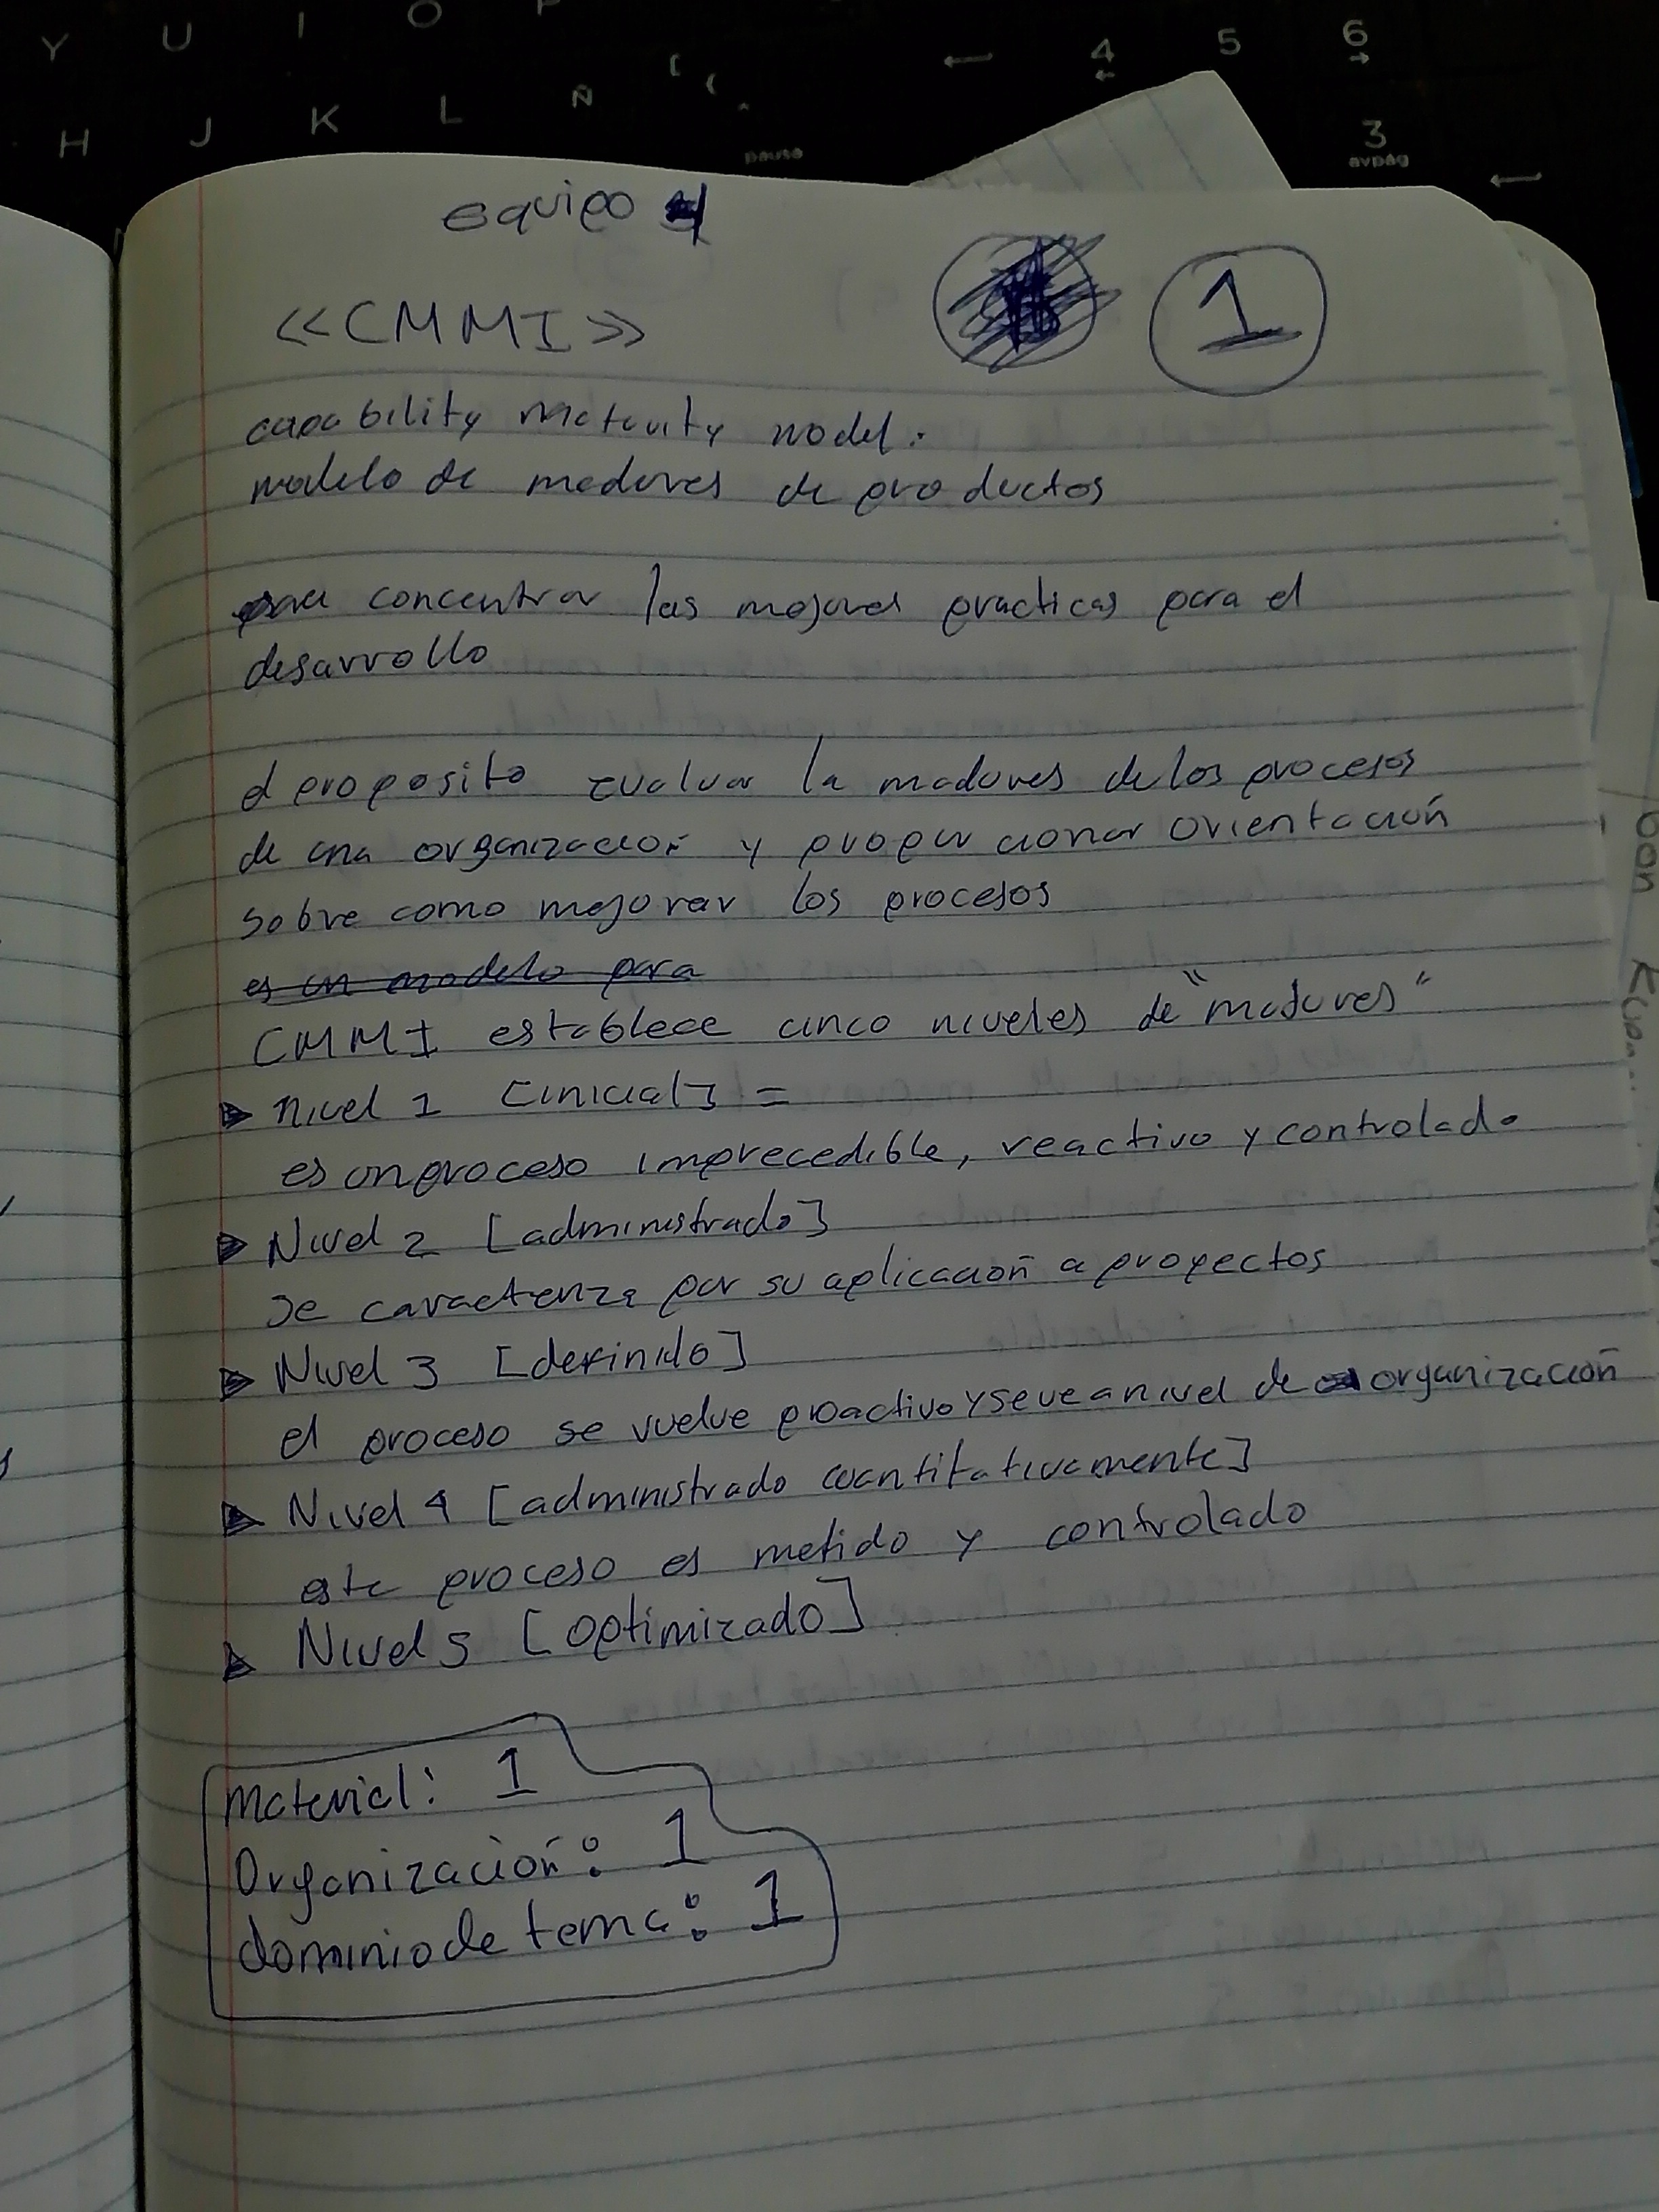 Y U I O P
[ ←
4 5 6
H J K L Ñ
pausa
3
avpág
equipo 4
1
<<CMMI>>
capability maturity model.
modelo de madures de productos
para concentrar las mejores practicas para el
desarrollo
el proposito evaluar la madures de los procesos
de una organización y proporcionar orientación
sobre como mejorar los procesos
es un modelo para
CMMI establece cinco niveles de "madures"
nivel 1 [inicial] =
es un proceso imprecedible, reactivo y controlado
Nivel 2 [administrado]
se caracteriza por su aplicación a proyectos
Nivel 3 [definido]
el proceso se vuelve proactivo y se ve a nivel de organización
Nivel 4 [administrado cuantitativamente]
este proceso es metido y controlado
Nivel 5 [optimizado]
material: 1
Organización: 1
dominio de tema: 1